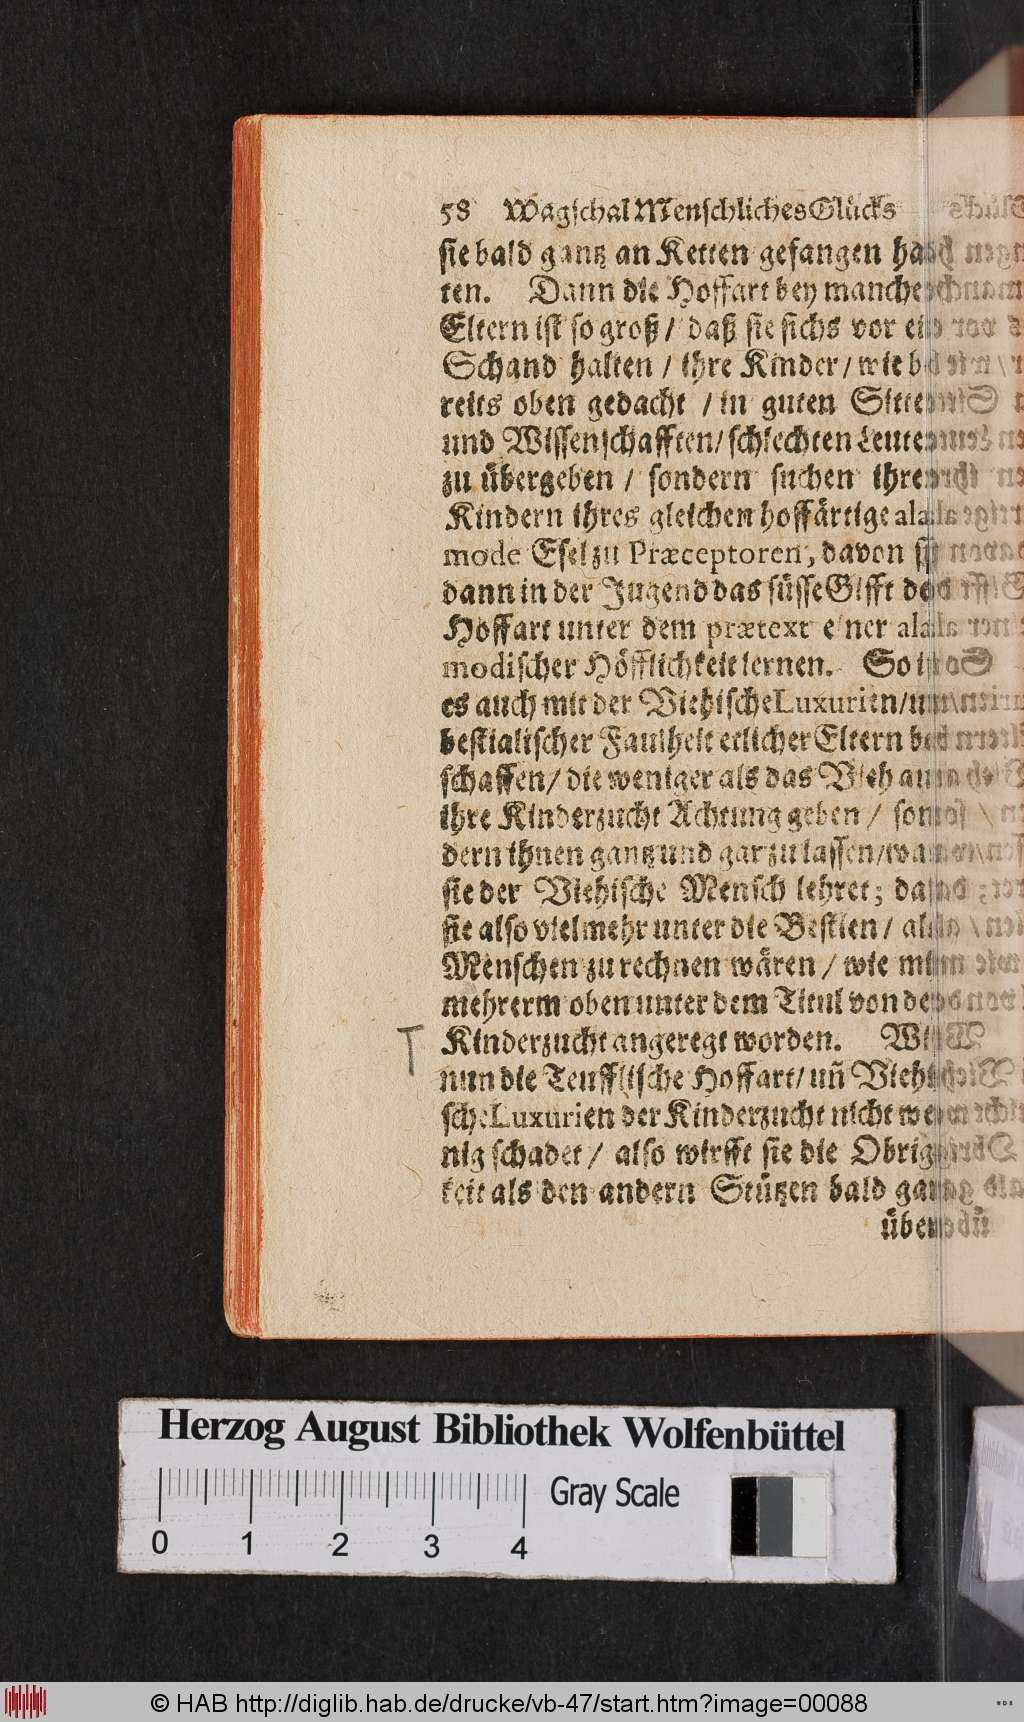 58 Wagschal Menschliches Glücks
sie bald gantz an Ketten gefangen hat
ten. Dann die Hoffart bey manchen
Eltern ist so groß / daß sie sichs vor ein
Schand halten / ihre Kinder / wie be
reits oben gedacht / in guten Sitten
und Wissenschafften / schlechten Leuten
zu übergeben / sondern suchen ihren
Kindern ihres gleichen hoffärtige ala
mode Esel zu Præceptoren, davon sie
dann in der Jugend das süsse Gifft der
Hoffart unter dem prætext einer ala
modischer Höfflichkeit lernen. So ist
es auch mit der Viehische Luxurien / un
bestialischer Faulheit etlicher Eltern be
schaffen / die weniger als das Vieh auf
ihre Kinderzucht Achtung geben / son
dern ihnen gantz und gar zu lassen / was
sie der Viehische Mensch lehret; daß
sie also vielmehr unter die Bestien / als
Menschen zu rechnen wären / wie mit
mehrerm oben unter dem Titul von der
Kinderzucht angeregt worden. Wie
nun die Teufflische Hoffart / uñ Viehi
sche Luxurien der Kinderzucht nicht we
nig schadet / also wirfft sie die Obrig
keit als den andern Stützen bald gantz
über
Herzog August Bibliothek Wolfenbüttel
Gray Scale
0 1 2 3 4
© HAB http://diglib.hab.de/drucke/vb-47/start.htm?image=00088